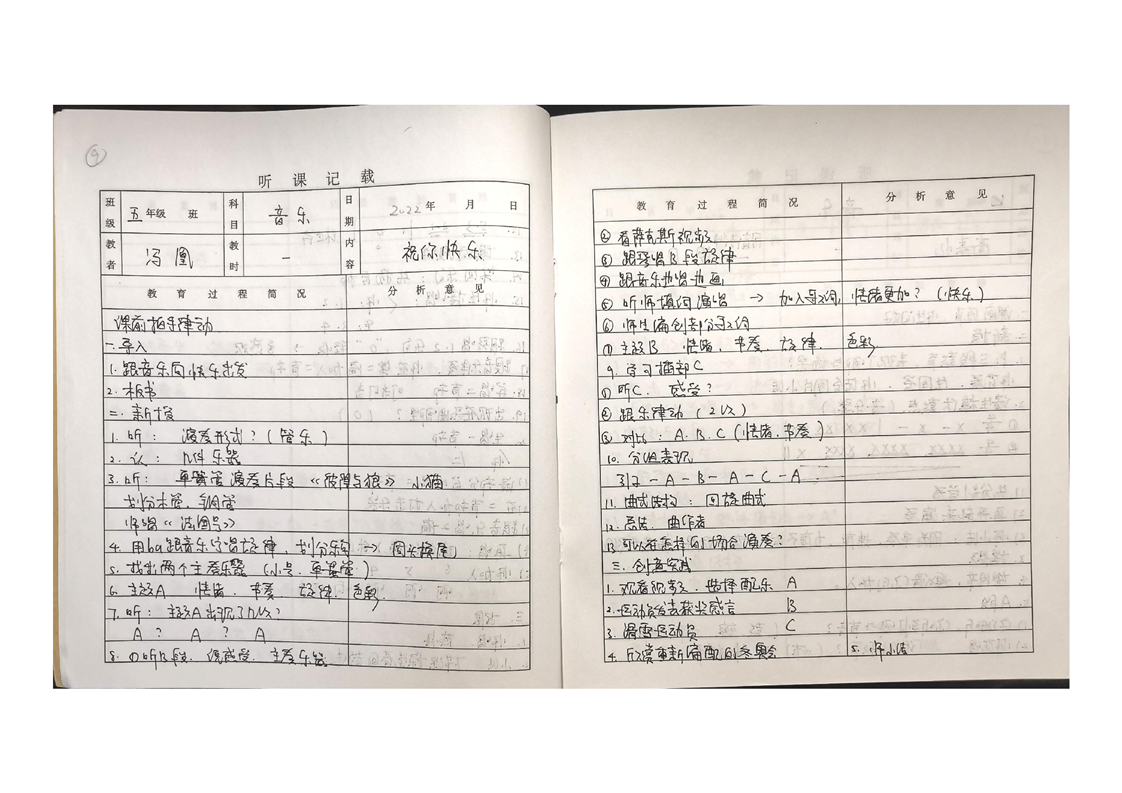 9
听课记载
班级 五年级 班 科目 音乐 日期 2022年 月 日
教者 冯凰 教时 一 内容 祝你快乐
教育过程简况 分析意见
课前指导律动
一.导入
1.跟音乐向快乐出发
2.板书
二.新授
1.听: 演奏形式?(管乐)
2.认: 几件乐器
3.听: 单簧管演奏片段《彼得与狼》小猫
划分木管、铜管
师唱《法国号》
4.用ba跟音乐哼唱旋律,划分乐句 → 回头换尾
5.找出两个主奏乐器(小号、单簧管)
6.主题A 情绪、节奏、旋律、色彩
7.听:主题A出现了几次?
A ? A ? A
8.①听B段,谈感受、主奏乐器
教育过程简况 分析意见
②看萨克斯视频
③跟琴唱B段旋律
④跟音乐边唱边画
⑤听师填词演唱 → 加入导词,情绪更加?(快乐)
⑥师生编创部分导词
⑦主题B 情绪、节奏、旋律、色彩
9.学习插部C
①听C. 感受?
②跟乐律动(2次)
③对比:A.B.C(情绪.节奏)
10.分组表现
引子-A-B-A-C-A
11.曲式结构:回旋曲式
12.总结.曲作者
13.可以在怎样的场合演奏?
三.创造实践
1.观看视频、选择配乐 A
2.运动员发表获奖感言 B
3.滑雪运动员 C
4.欣赏重新编配的冬奥会 5.师小结